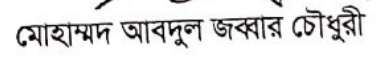 মোহাম্মদ আবদুল জব্বার চৌধুরী